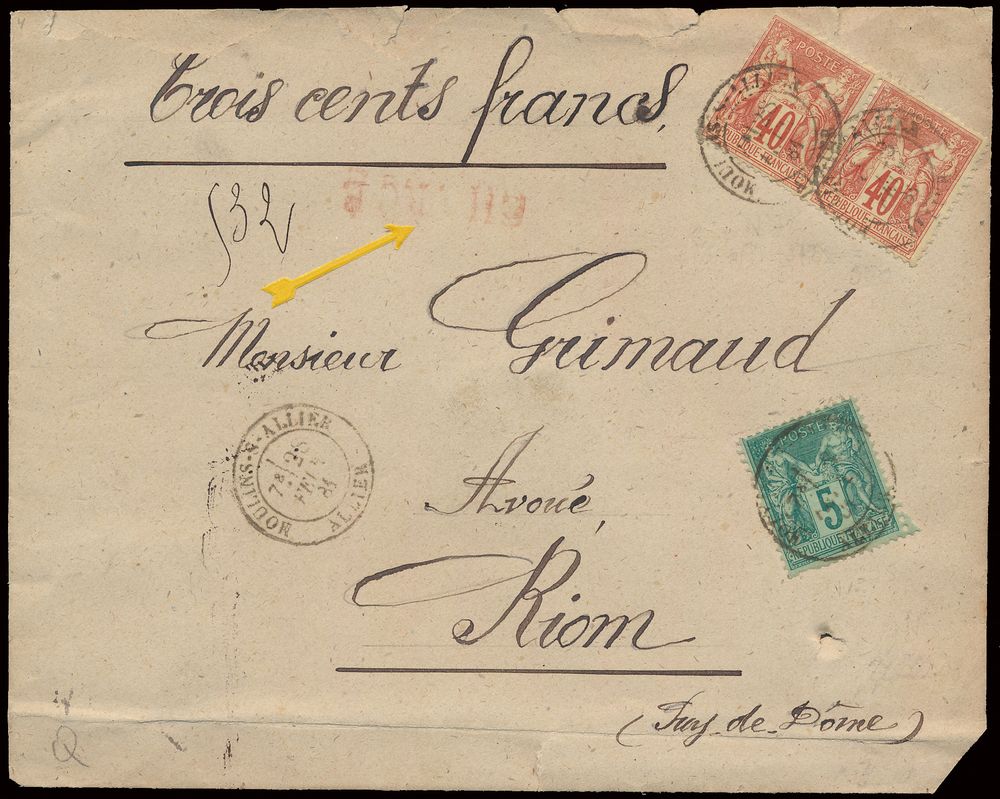 Trois cents francs,
POSTE
40
RÉPUBLIQUE FRANÇAISE
POSTE
40
RÉPUBLIQUE FRANÇAISE
532
Monsieur Grimaud
MOULINS-S-ALLIER
ALLIER
POSTE
5
RÉPUBLIQUE FRANÇAISE
Avoué,
Riom
(Puy-de-Dôme)